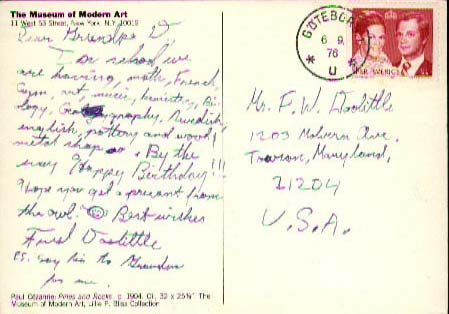 The Museum of Modern Art
11 West 53 Street, New York, N.Y. 10019
Dear Grrendpa D,
I or school we
are having, math, French,
Gym, art, music, Bi-
ology, Geography, Swedish
english, pottery and wood/
metal shop. By the
way Happy Birthday!!!
Hope you get a present from
the owl. Best wishes
Fred Doolittle
PS. Say hi to Grandma
for me.
Paul Cézanne: Pines and Rocks. c. 1904. Oil, 32 x 25¾" The
Museum of Modern Art, Lillie P. Bliss Collection
GÖTEBORG
6 9
76
U
SVERIGE
Mr. F. W. Doolittle
1203 Malvern Ave.
Towson, Maryland,
21204
U.S.A.